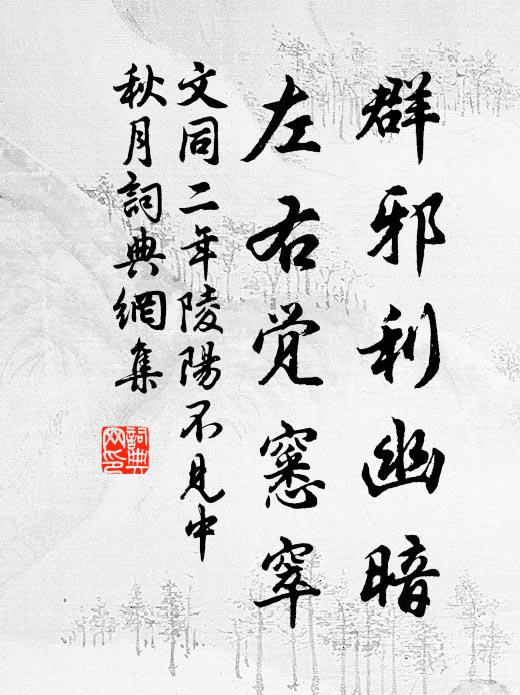 群邪利幽暗
左右觉窸窣
文同二年陵陽不見中
秋月詞典網集
詞典
网印